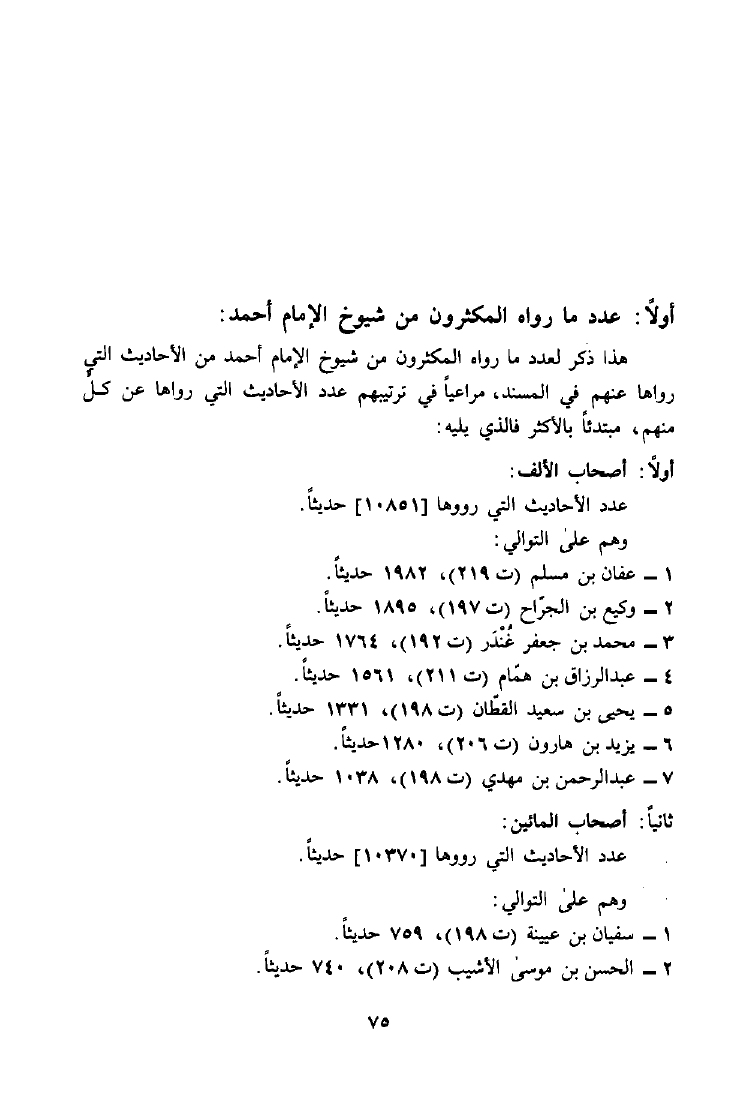 أولاً: عدد ما رواه المكثرون من شيوخ الإمام أحمد:
هذا ذكر لعدد ما رواه المكثرون من شيوخ الإمام أحمد من الأحاديث التي
رواها عنهم في المسند، مراعياً في ترتيبهم عدد الأحاديث التي رواها عن كلّ
منهم، مبتدئاً بالأكثر فالذي يليه:
أولاً: أصحاب الألف:
عدد الأحاديث التي رووها [١٠٨٥١] حديثاً.
وهم على التوالي:
١ ــ عفان بن مسلم (ت ٢١٩)، ١٩٨٢ حديثاً.
٢ ــ وكيع بن الجرّاح (ت ١٩٧)، ١٨٩٥ حديثاً.
٣ ــ محمد بن جعفر غُنْدَر (ت ١٩٢)، ١٧٦٤ حديثاً.
٤ ــ عبدالرزاق بن همّام (ت ٢١١)، ١٥٦١ حديثاً.
٥ ــ يحيى بن سعيد القطّان (ت ١٩٨)، ١٣٣١ حديثاً.
٦ ــ يزيد بن هارون (ت ٢٠٦)، ١٢٨٠حديثاً.
٧ ــ عبدالرحمن بن مهدي (ت ١٩٨)، ١٠٣٨ حديثاً.
ثانياً: أصحاب المائين:
عدد الأحاديث التي رووها [١٠٣٧٠] حديثاً.
وهم على التوالي:
١ ــ سفيان بن عيينة (ت ١٩٨)، ٧٥٩ حديثاً.
٢ ــ الحسن بن موسىٰ الأشيب (ت ٢٠٨)، ٧٤٠ حديثاً.
٧٥